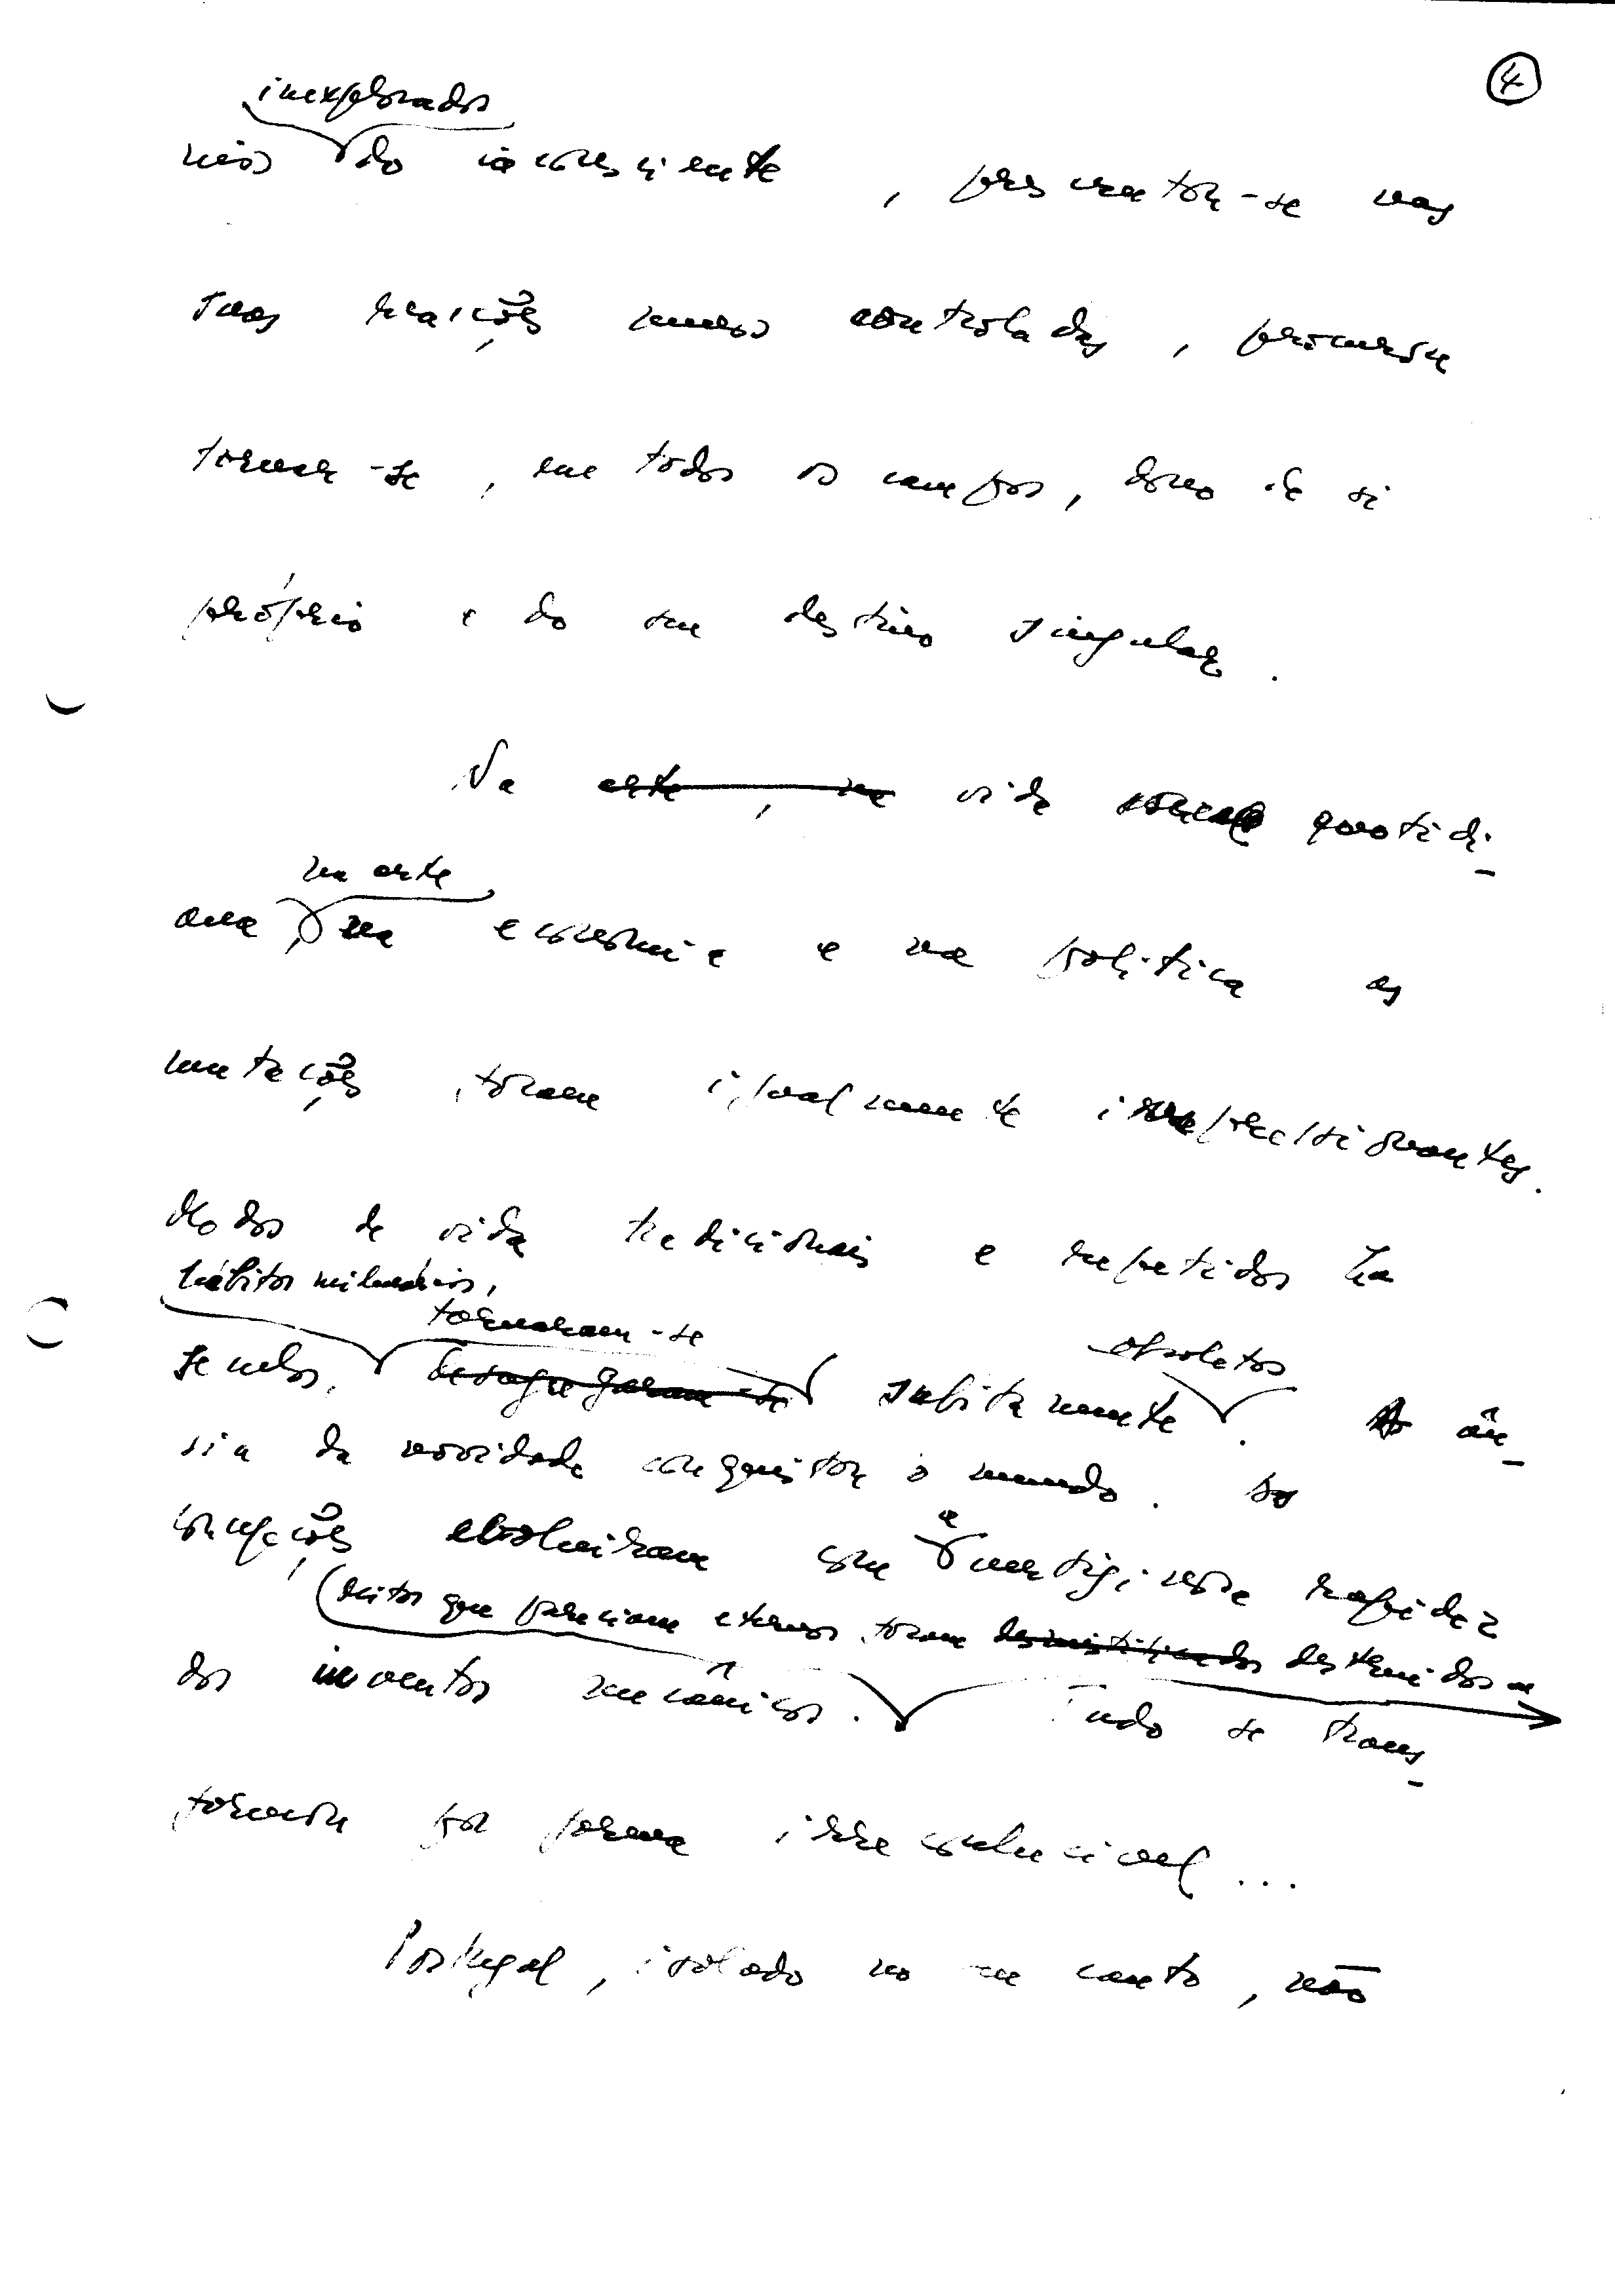 4
inexplorados
nios do inconsciente, perscrutou-se nas
suas reacções menos controladas, procurou
tornar-se, em todos os campos, dono de si
próprio e do seu destino singular.
Na arte, na vida quotidi-
na arte
ana, na economia e na política as
mutações foram igualmente impressionantes.
Modos de vida tradicionais e repetidos há
hábitos milenários,
tornaram-se
obsoletos
séculos, desagregaram-se subitamente. A ân-
sia da novidade conquistou o mundo. As
concepções evoluiram com a vertiginosa rapidez
(mitos que pareciam eternos foram desmistificados destruidos
dos inventos mecânicos. Tudo se trans-
formou por forma irreconhecível...
Portugal, isolado no seu canto, não